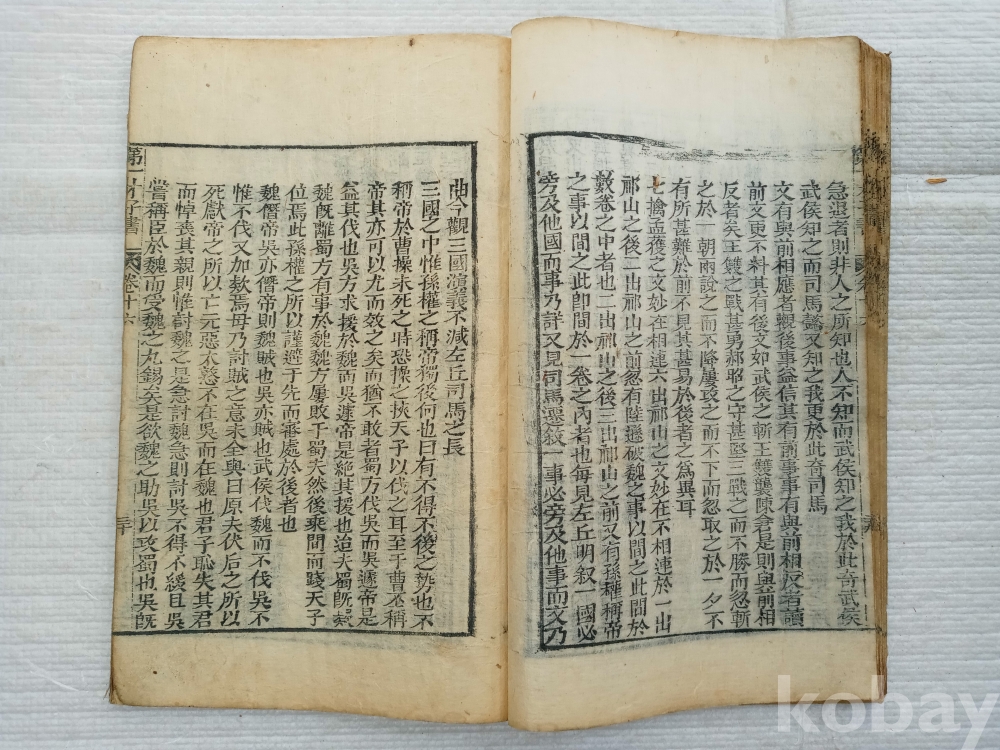 急退者則非人之所知也人不知而武侯知之我於此奇武侯
武侯知之而司馬懿又知之我更於此奇司馬
文有與前相應者觀後事益信其有前事事有與前相反者讀
前文更不料其有後文如武侯之斬王雙襲陳倉是則與前相
反者矣王雙之戰甚勇郝昭之守甚堅三戰之而不勝而忽斬
之於一朝兩說之而不降屢攻之而不下而忽取之於一夕不
有所甚難於前不見其甚易於後者之為異耳
七擒孟獲之文妙在相連六出祁山之文妙在不相連於一出
祁山之後二出祁山之前忽有陸遜破魏之事以間之此間於
數卷之中者也二出祁山之後三出祁山之前又有孫權稱帝
之事以間之此即間於一卷之內者也每見左丘明叙一國必
旁及他國而事乃詳又見司馬遷叙一事必旁及他事而文乃
曲今觀三國演義不減左丘司馬之長
三國之中惟孫權之稱帝獨後何也曰有不得不後之勢也不
稱帝於曹操未死之時恐操之挾天子以伐之耳至于曹丕稱
帝其亦可以尤而效之矣而猶不敢者蜀方伐吳而吳遽帝是
益其伐也吳方求援於魏而吳遽帝是絕其援也迨夫蜀旣
魏旣離蜀方有事於魏魏方屢敗于蜀夫然後乘間而踐天子
位焉此孫權之所以謹避于先而審處於後者也
魏僭帝吳亦僭帝則魏賊也吳亦賊也武侯伐魏而不伐吳不
惟不伐又加歎焉毋乃討賊之意未全與曰原夫伏后之所以
死獻帝之所以亡元惡大憝不在吳而在魏也君子恥失其君
而悼喪其親則惟討魏之是急討魏急則討吳不得不緩且吳
嘗稱臣於魏而受魏之九錫矣是欲魏之助吳以攻蜀也吳旣
第一才子書
卷十六
三十
kobay